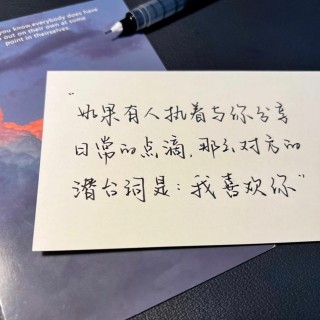 you know, everybody does have
out on their own at some
point in themselves.
"如果有人执着与你分享
日常的点滴,那么对方的
潜台词是:我喜欢你"